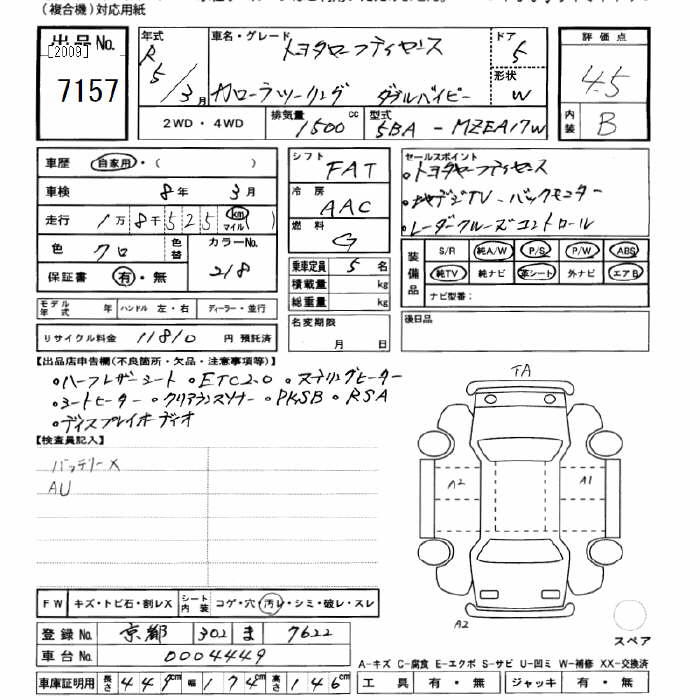 (複合機)対応用紙
出品No. [2009] 7157
年式 R5/3月
車名・グレード トヨタセーフティセンス
カローラツーリング ダブルバイビー
ドア 5
形状 W
評価点 4.5
内装 B
2WD・4WD 排気量 1500cc 型式 5BA-MZEA17W
車歴 自家用・( )
車検 8年 3月
走行 1万8千525 km マイル( )
色 クロ 色替 カラーNo. 218
保証書 有・無
モデル年式 年 ハンドル 左・右 ディーラー・並行
リサイクル料金 11810円 預託済
シフト FAT
冷房 AAC
燃料 G
乗車定員 5名
積載量 kg
総重量 kg
名変期限 月 日
セールスポイント
・トヨタセーフティセンス
・地デジTV-バックモニター
・レーダークルーズコントロール
装備品 S/R 純A/W P/S P/W ABS
純TV 純ナビ 革シート 外ナビ エアB
ナビ型番:
後日品
【出品店申告欄(不良箇所・欠品・注意事項等)】
・ハーフレザーシート ・ETC2.0 ・ステアリングヒーター
・シートヒーター ・クリアランスソナー ・PKSB ・RSA
・ディスプレイオーディオ
【検査員記入】
バッテリーX
AU
TA
A2 A1
A2
スペア
FW キズ・トビ石・割レX シート内装 コゲ・穴・汚レ・シミ・破レ・スレ
登録No. 京都 302 ま 7622
車台No. 0004449
A-キズ C-腐食 E-エクボ S-サビ U-凹ミ W-補修 XX-交換済
車庫証明用 長さ 449cm 幅 174cm 高さ 146cm 工具 有・無 ジャッキ 有・無